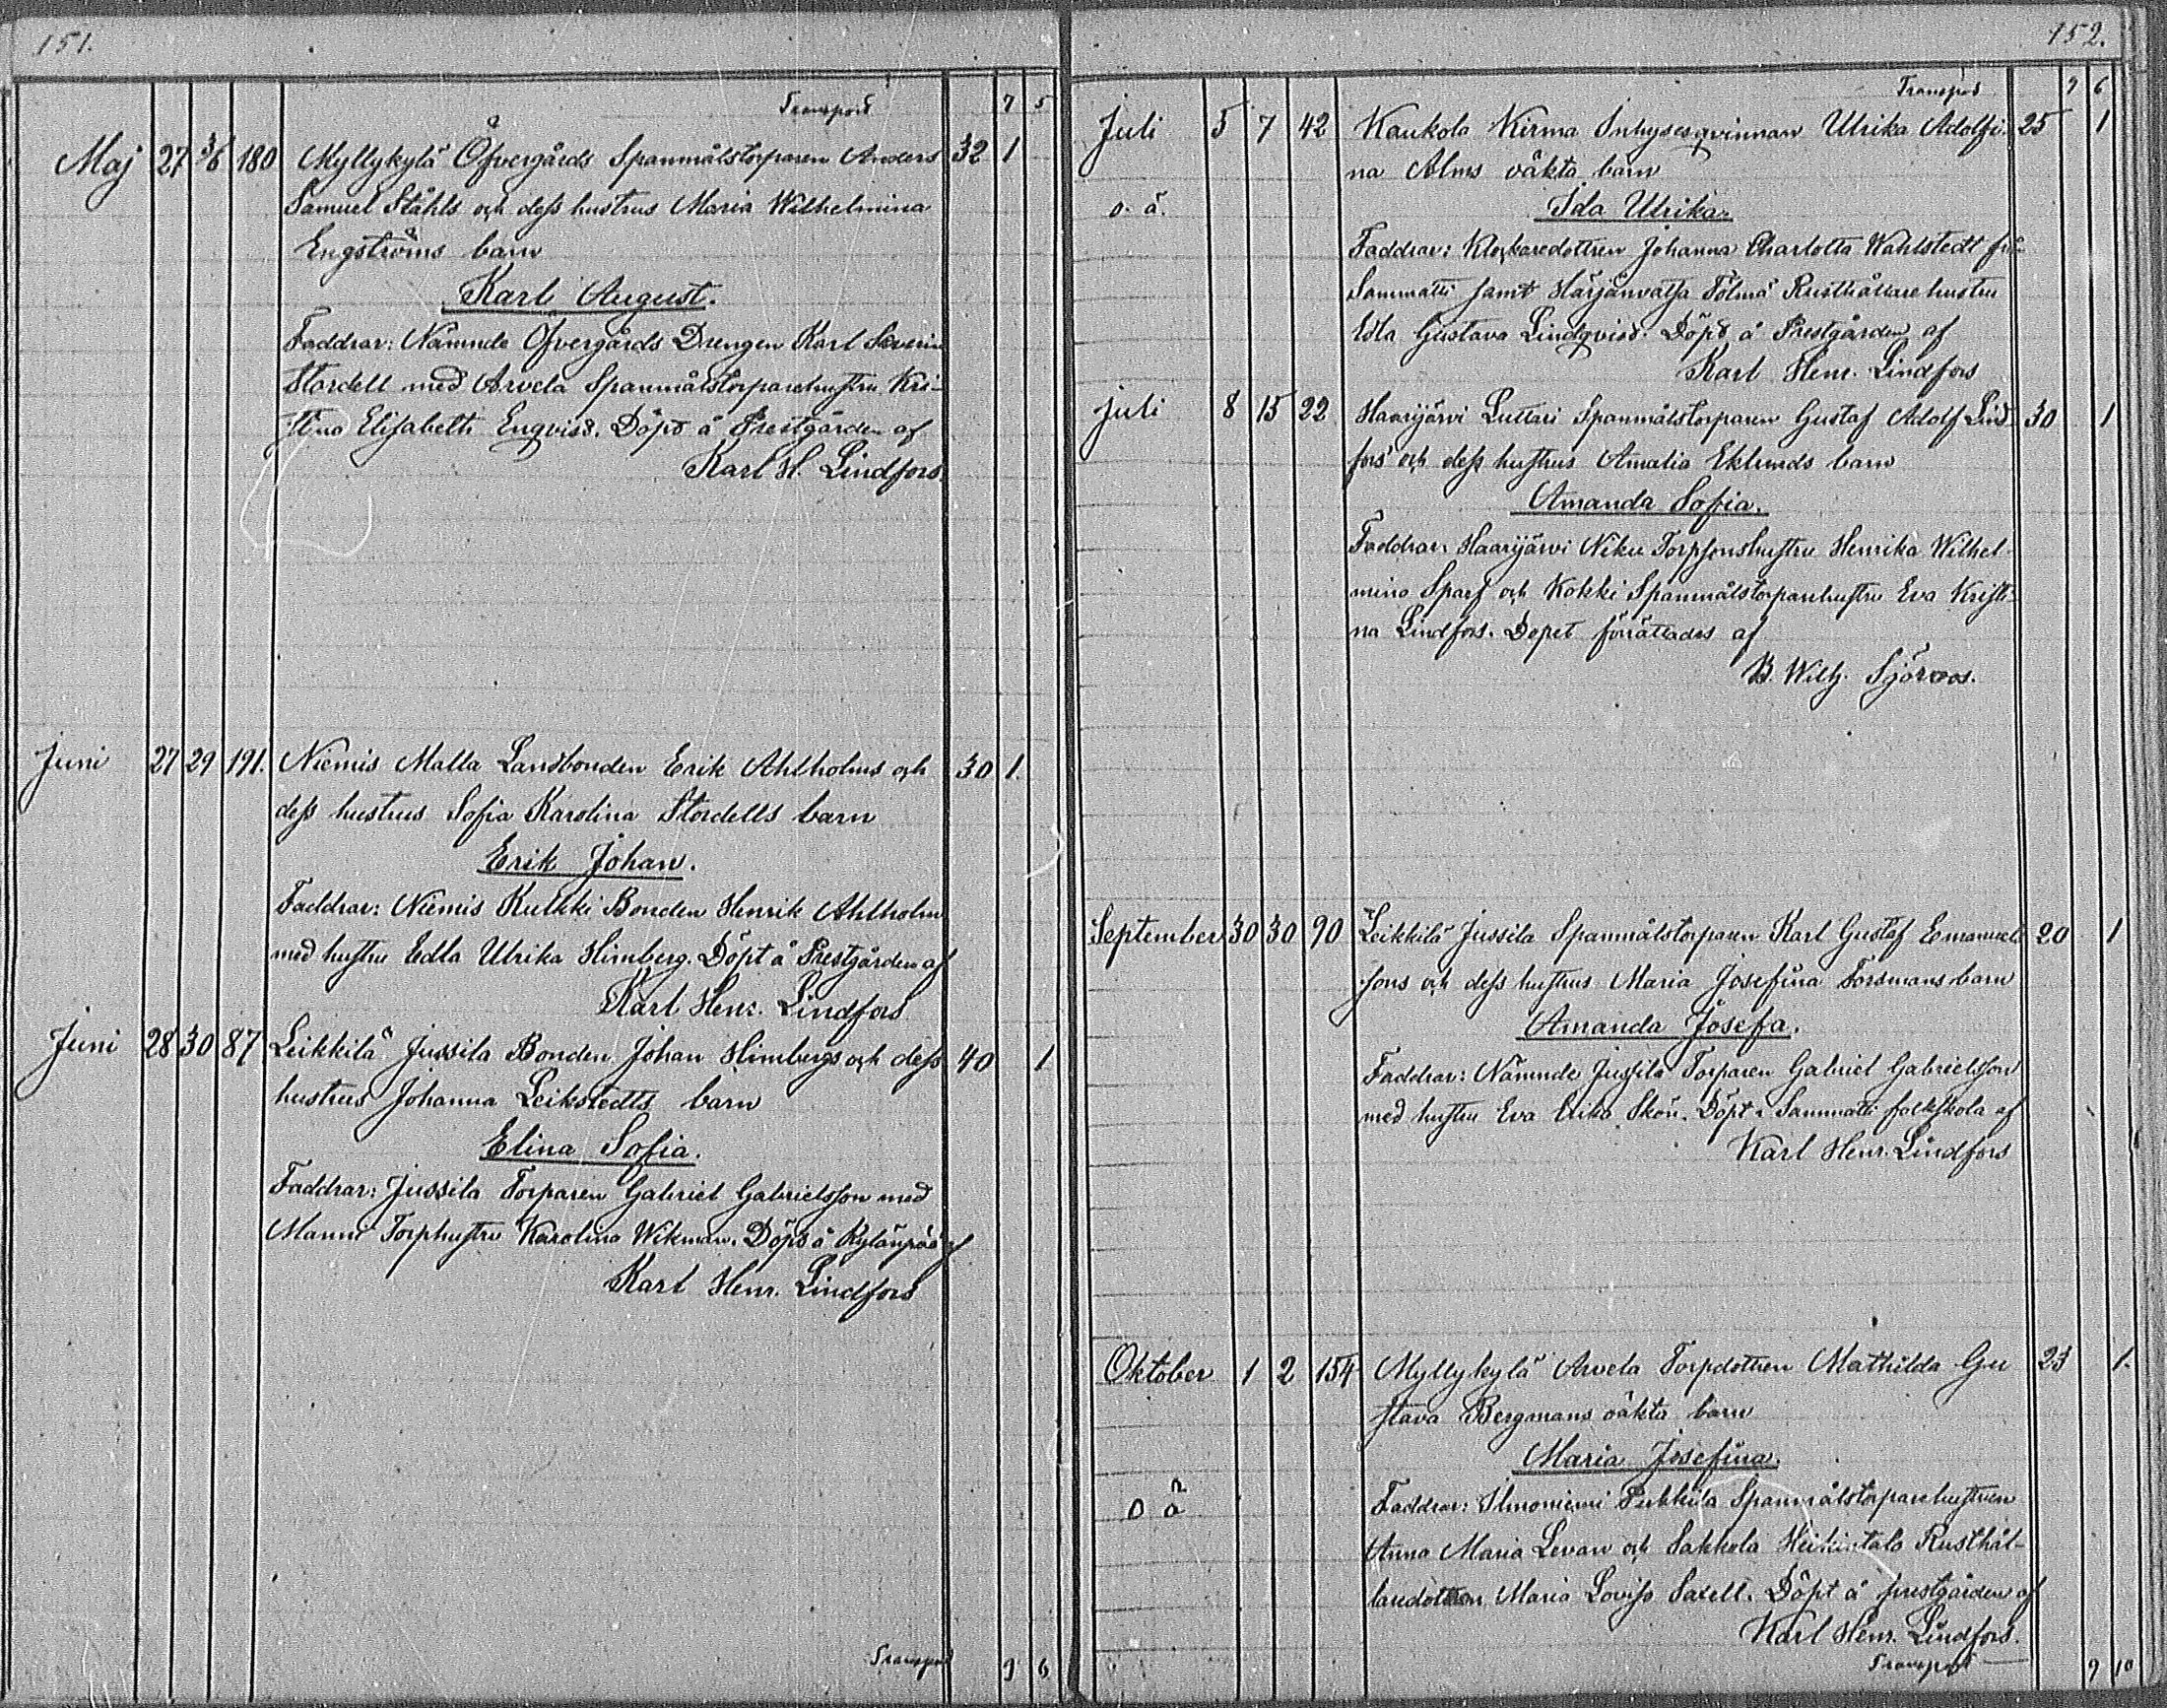 151.
Transport 7 5
Maj 27 3/6 180 Myllykylä Öfvergårds Spanmålstorparen Anders 32 1
Samuel Ståhls och dess hustrus Maria Wilhelmina
Engströms barn
Karl August.
Faddrar: Nämnde Öfvergårds Drengen Karl Severin
Stordell med Arvela Spanmålstorparehustru Kri-
stina Elisabeth Enqvist. Döpt å Prestgården af
Karl H. Lindfors.
Juni 27 29 191. Niemis Malla Landbonden Erik Ahlholms och 30 1.
dess hustrus Sofia Karolina Stordells barn
Erik Johan.
Faddrar: Niemis Kulkki Bonden Henrik Ahlholm
med hustru Edla Ulrika Himberg. Döpt å Prestgården af
Karl Henr. Lindfors
Juni 28 30 87 Leikkilä Jussila Bonden Johan Himbergs och dess 40 1
hustrus Johanna Leikstedts barn
Elina Sofia.
Faddrar: Jussila Torparen Gabriel Gabrielsson med
Manni Torphustru Karolina Wikman. Döpt å Kylänpää af
Karl Henr. Lindfors
Transport 9 6
152.
Transport 9 6
Juli 5 7 42 Kaukola Kirma Inhysesqvinnan Ulrika Adolfi- 25 1
na Alms oäkta barn
o. ä. Ida Ulrika.
Faddrar: Klockaredottren Johanna Charlotta Wahlstedt från
Sammatti samt Härjänvatsa Tölmä Rusthållare hustru
Edla Gustava Lindqvist. Döpt å Prestgården af
Karl Henr. Lindfors
Juli 8 15 22 Haarijärvi Luttari Spanmålstorparen Gustaf Adolf Lind- 30 1
fors' och dess hustrus Amalia Eklunds barn
Amanda Sofia.
Faddrar: Haarijärvi Niku Torpsonshustru Henrika Wilhel-
mina Sparf och Kokki Spanmålstorparehustru Eva Kristi-
na Lindfors. Dopet förrättades af
B. Wilh. Sjöroos.
September 30 30 90 Leikkilä Jussila Spanmålstorparen Karl Gustaf Emanuels- 20 1
sons och dess hustrus Maria Josefina Forsmans barn
Amanda Josefa.
Faddrar: Nämnde Jussila Torparen Gabriel Gabrielsson
med hustru Eva Erika Skön. Döpt i Sammatti folkskola af
Karl Henr. Lindfors
Oktober 1 2 154 Myllykylä Arvela Torpdottren Mathilda Gu 23 1.
stava Bergmans oäkta barn
Maria Josefina.
o ä Faddrar: Ilmoniemi Pukkila Spanmålstorparehustrun
Anna Maria Levan och Sakkola Heikintalo Rusthål-
laredottren Maria Lovisa Saxell. Döpt å prestgården af
Karl Henr. Lindfors.
Transport 9 10